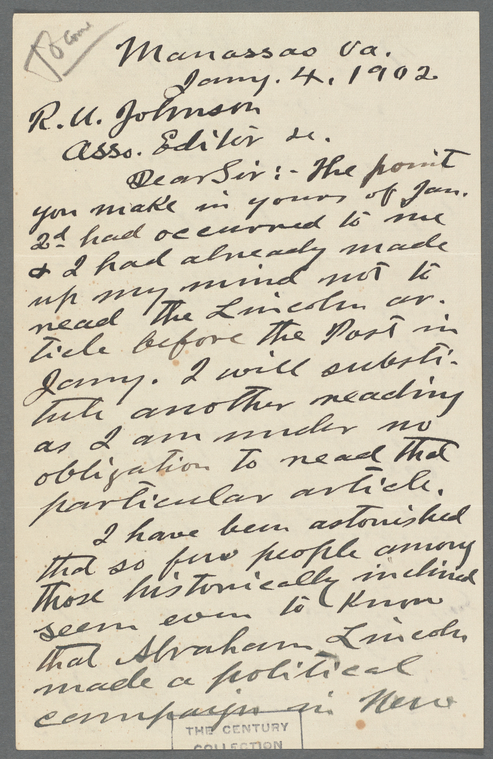 Manassas Va.
Jany. 4, 1902
R. U. Johnson
Asso. Editor &c.
Dear Sir:- The point
you make in yours of Jan.
2d had occurred to me
& I had already made
up my mind not to
read the Lincoln ar-
ticle before the Post in
Jany. I will substi-
tute another reading
as I am under no
obligation to read that
particular article.
I have been astonished
that so few people among
those historically inclined
seem even to know
that Abraham Lincoln
made a political
campaign in New
THE CENTURY
COLLECTION